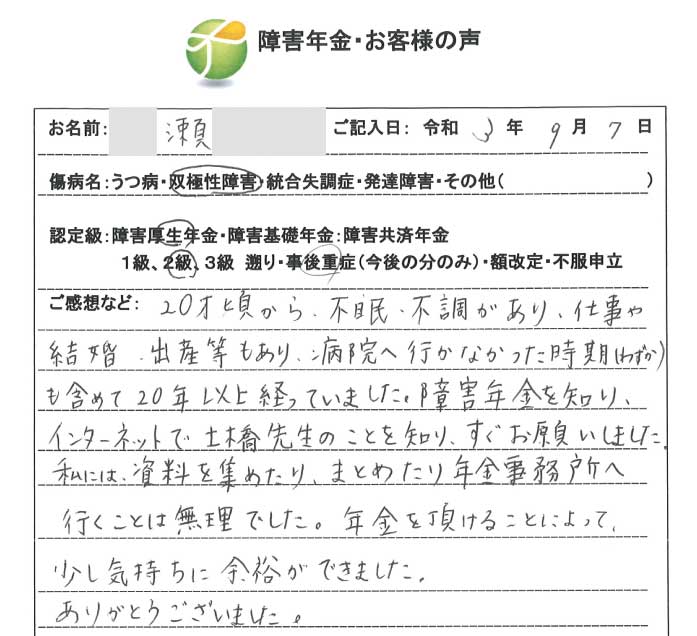 障害年金・お客様の声
お名前: 瀬 ご記入日: 令和 3 年 9 月 7 日
傷病名:うつ病・双極性障害・統合失調症・発達障害・その他( )
認定級:障害厚生年金・障害基礎年金:障害共済年金
1級、2級、3級 遡り・事後重症(今後の分のみ)・額改定・不服申立
ご感想など: 20才頃から、不眠、不調があり、仕事や
結婚、出産等もあり、病院へ行かなかった時期(わずか)
も含めて20年以上経っていました。障害年金を知り、
インターネットで土橋先生のことを知り、すぐお願いしました。
私には、資料を集めたり、まとめたり年金事務所へ
行くことは無理でした。年金を頂けることによって、
少し気持ちに余裕ができました。
ありがとうございました。